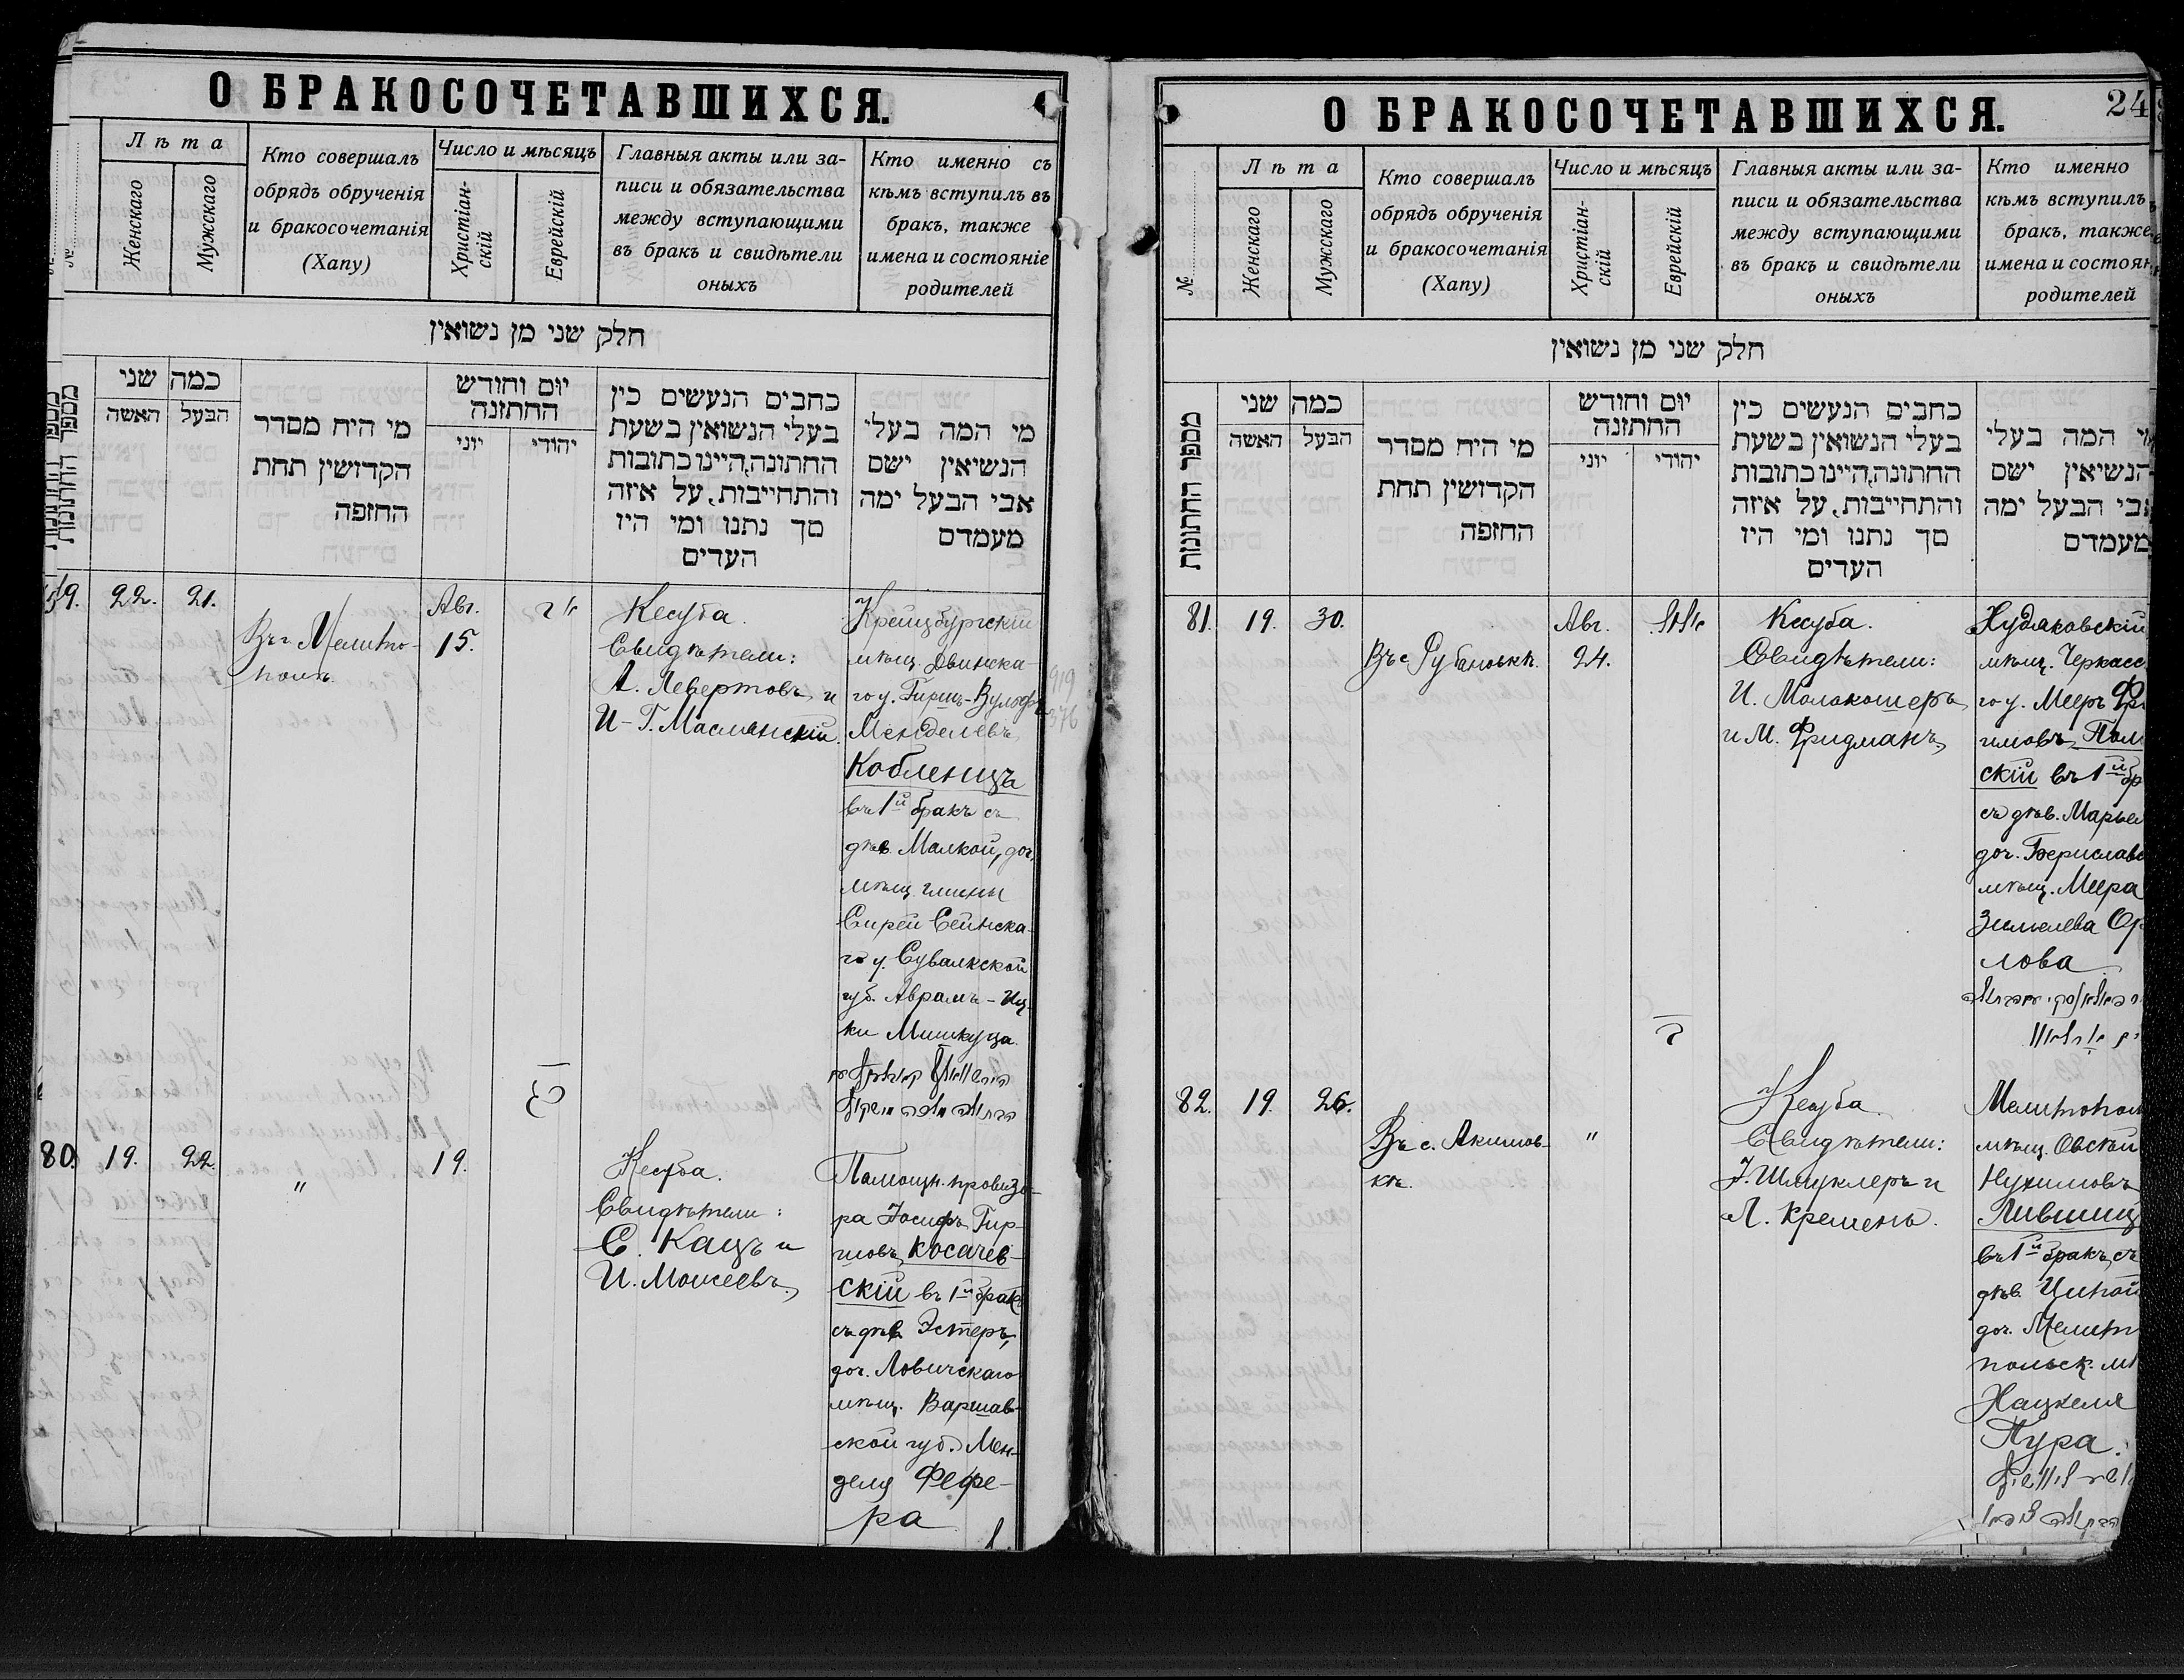 О БРАКОСОЧЕТАВШИХСЯ.
№
Лѣта
Женскаго
Мужскаго
Кто совершалъ
обрядъ обрученія
и бракосочетанія
(Хапу)
Число и мѣсяцъ
Христіан-
скій
Еврейскій
Главныя акты или за-
писи и обязательства
между вступающими
въ бракъ и свидѣтели
оныхъ
Кто именно съ
кѣмъ вступилъ въ
бракъ, также
имена и состояніе
родителей
חלק שני מן נשואין
מספר החתונות
כמה שני
האשה
הבעל
מי היח מסדר
הקדושין תחת
החזפה
יום וחודש
החתזנה
יוני
יהודי
כחבים הנעשים כין
בעלי הנשואין בשעת
החתונה,היינו כתובות
והתחייבות, על איזה
סך נתנו ומי היז
העדים
מי המה בעלי
הנשיאין ישם
אבי הבעל ימה
מעמדם
59.
22.
21.
Въ г. Мелито-
полѣ
Авг.
15.
Кесуба.
Свидѣтели:
А. Левертовъ и
И-Г. Маслянскій.
Крейцбургскій
мѣщ. Двинска-
го у. Гиршъ-Вульфъ
Менделевъ
Кобленцъ
въ 1й бракъ съ
дѣв. Малкой, доч.
мѣщ. гмины
Сирей Сейнска-
го у. Сувалкской
губ. Аврамъ-Иц-
ки Мишкуца.
80.
19.
22.
"
19.
Кесуба.
Свидѣтели:
С. Кацъ и
И. Моисеевъ.
Помощн. провизо-
ра Іосифъ Гир-
шовъ Косачев-
скій въ 1й бракъ
съ дѣв. Эстеръ,
доч. Ловичскаго
мѣщ. Варшав-
ской губ. Мен-
деля Фефе-
ра
919
376
О БРАКОСОЧЕТАВШИХСЯ.
24
№
Лѣта
Женскаго
Мужскаго
Кто совершалъ
обрядъ обрученія
и бракосочетанія
(Хапу)
Число и мѣсяцъ
Христіан-
скій
Еврейскій
Главныя акты или за-
писи и обязательства
между вступающими
въ бракъ и свидѣтели
оныхъ
Кто именно
кѣмъ вступилъ
бракъ, также
имена и состоян
родителей
חלק שני מן נשואין
מספר החתונות
כמה שני
האשה
הבעל
מי היח מסדר
הקדושין תחת
החזפה
יום וחודש
החתזנה
יוני
יהודי
כחבים הנעשים כין
בעלי הנשואין בשעת
החתונה,היינו כתובות
והתחייבות, על איזה
סך נתנו ומי היז
העדים
המה בעלי
הנשיאין ישם
אבי הבעל ימה
מעמדם
81.
19.
30.
Въ с. Рубановкѣ.
Авг.
24.
אלול
Кесуба.
Свидѣтели:
И. Молокошеръ
и М. Фридманъ
Худяковскій
мѣщ. Черкасс
го у. Мееръ
имовъ Пол
скій въ 1й бр
съ дѣв. Марьей
доч. Бериславс
мѣщ. Меера
Зимелева Ор
лова
82.
19.
26.
Въ с. Акимов-
кѣ.
"
Кесуба.
Свидѣтели:
І. Шмуклеръ и
Л. Кремень.
Мелитопол
мѣщ. Овсѣй
Нухимовъ
Лившиц
въ 1й бракъ съ
дѣв. Ципой
доч. Мелито
польск. мѣ
Хацкеля
Пура.